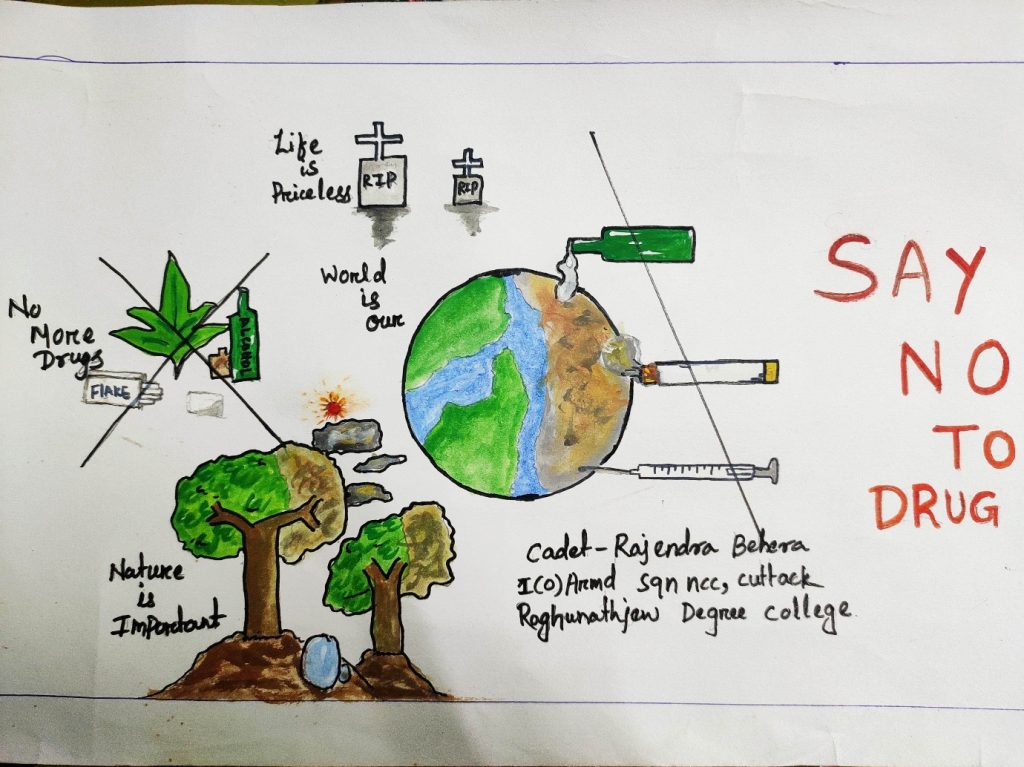 Life
is
Priceless
RIP
RIP
World
is
our
No
More
Drugs
Alcohol
FLAKE
SAY
NO
TO
DRUG
Nature
is
Important
Cadet-Rajendra Behera
I(O)Armd sqn ncc, cuttack
Raghunathjew Degree college